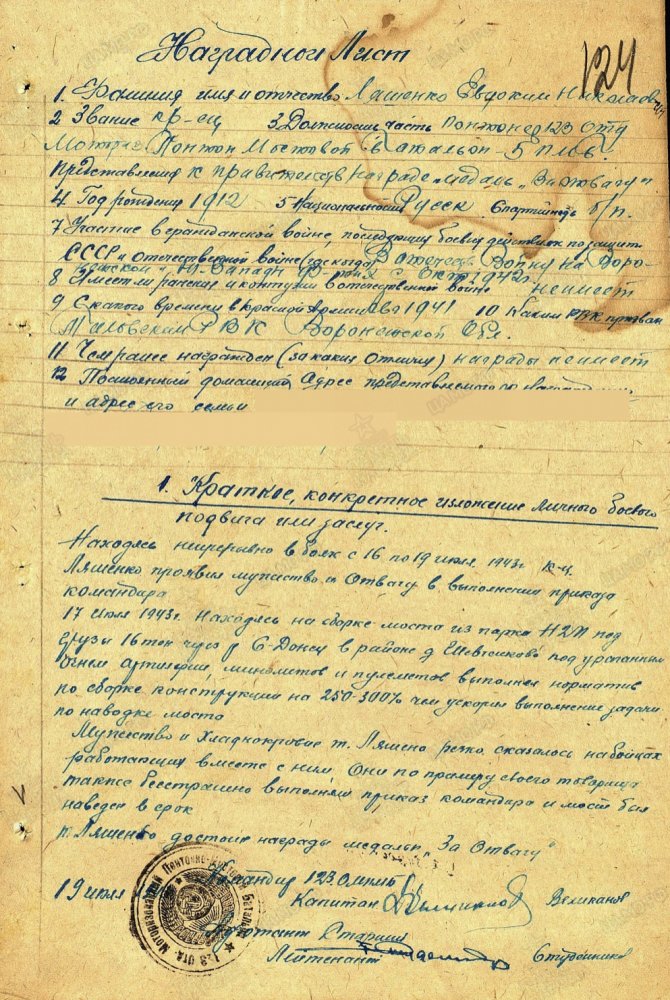 124
Наградной Лист
1. Фамилия имя и отчество Ляшенко Евдоким Николаевич
2 Звание кр-ец 3 Должность часть понтонер 123 Отд
Моториз. Понтон Мостовой Батальон - 5 ПМБ.
Представлення к правительств награде медаль „За отвагу"
4. Год рождения 1912 5 Национальность Русск 6 партийность б/п.
7 Участие в гражданской войне, последующих боевых действиях по защите
СССР и отечественной войне (где когда) В отечеств войну на Воро-
нежском и Ю-Западн фр-нтя с Окт 1942г
8 Имеет ли ранения и контузии в отечественной войне неимеет
9 С какого времени в красной армии 1941 10 Каким РВК призван
РВК Воронежской Обл.
11 Чем ранее награжден (за какия отличия) награды неимеет
12 Постоянный домашний Адрес представляемого к
и адрес его семьи
1. Краткое, конкретное изложение личного боевого
подвига или заслуг.
Находясь непрерывно в боях с 16 по 19 июля 1943г к-ц.
Ляшенко проявил мужество и Отвагу в выполнении приказа
командира
17 Июля 1943г. Находясь на сборке моста из парка Н2П под
грузы 16 тон через р С-Донец в районе д под ураганным
огнем артилерии, минометов и пулеметов выполнял норматив
по сборке конструкции на 250-300% чем ускорил выполнение задачи
по наводке моста
Мужество и Хладнокровие т. Ляшено резко сказалось на бойцах
работающих вместе с ним. Они по примеру своего товарища
также бесстрашно выполняли приказ командира и мост был
наведен в срок
т. Ляшенко достоин награды медаль „За Отвагу"
Командир 123 ОМПМБ
19 июля Капитан Великанов
Адъютант Старший
Лейтенант Студенников
123 Отд. Моторизованный Понтонно-Мостовой Батальон